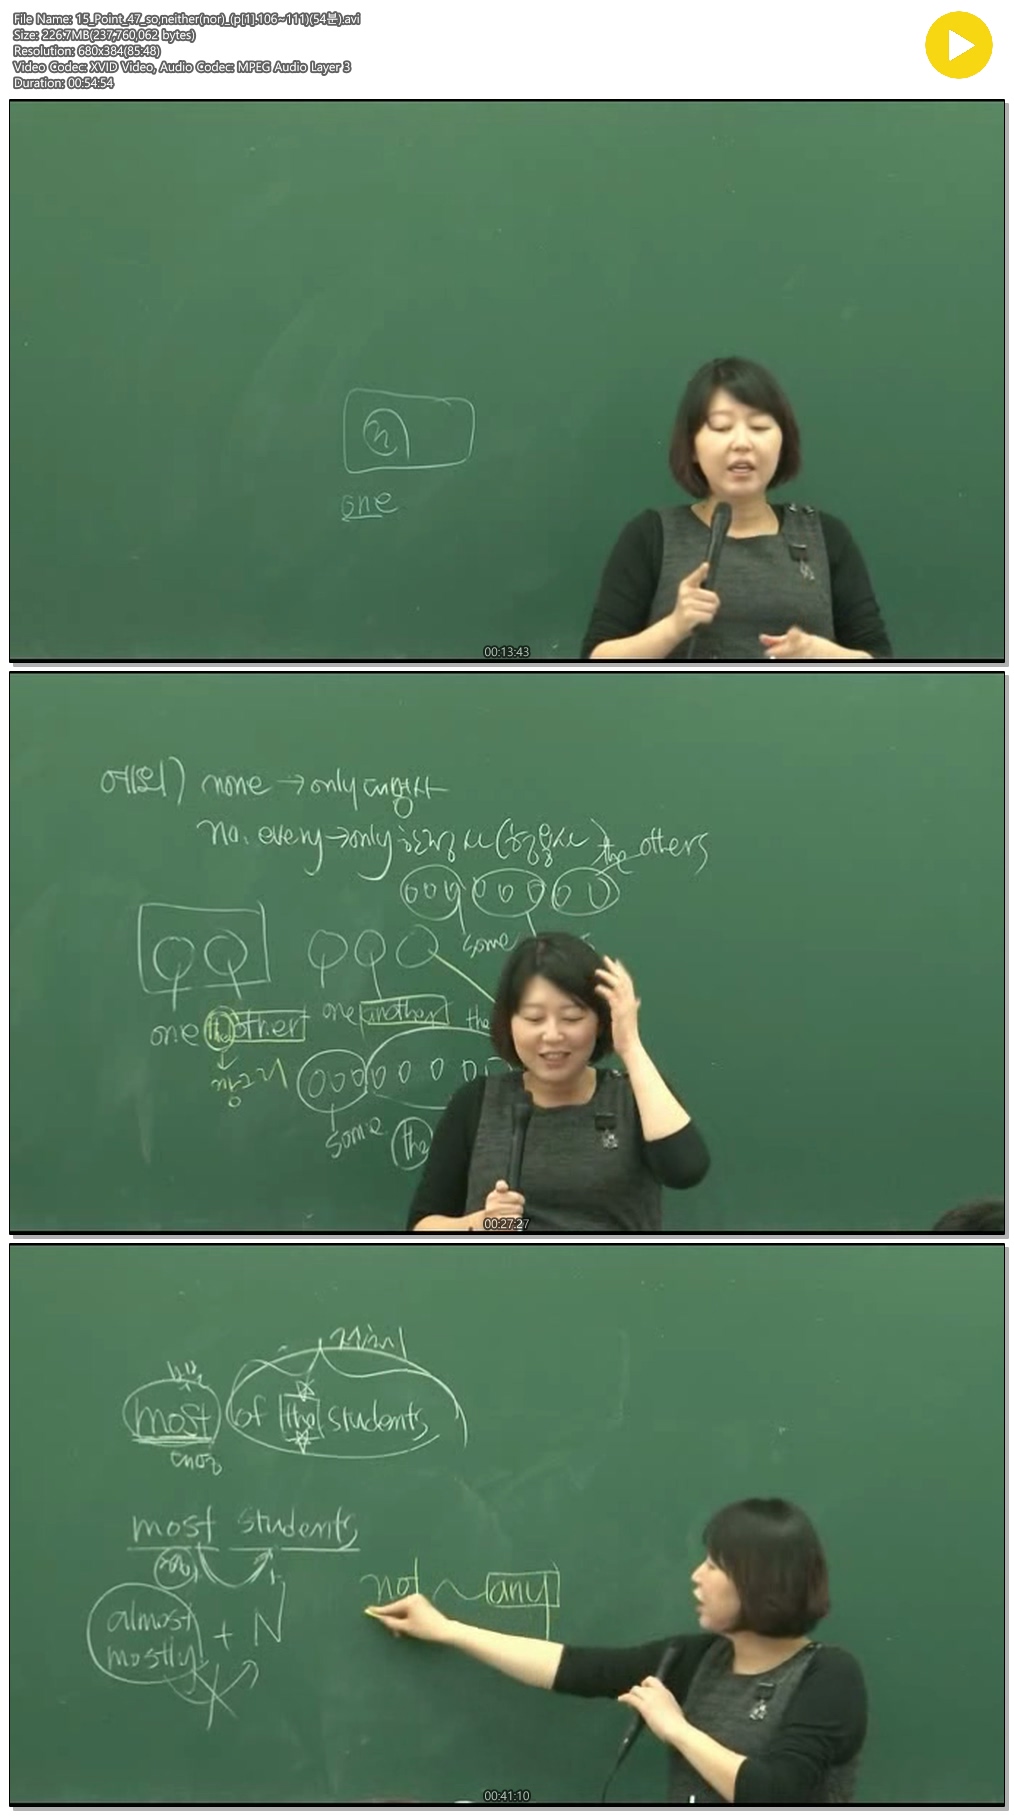 File Name: 15_Point_47_so,neither(nor)_(p[1].106~111)(54분).avi
Size: 226.7MB(237,760,062 bytes)
Resolution: 680x384(85:48)
Video Codec: XVID Video, Audio Codec: MPEG Audio Layer 3
Duration: 00:54:54
one
00:13:43
예외) none → only 대명사
no. every → only 한정사(형용사)
the others
some
one the other
one another the
some the
00:27:27
전체
부분
most of the students
most students
not ~ any
almost
mostly + N
00:41:10